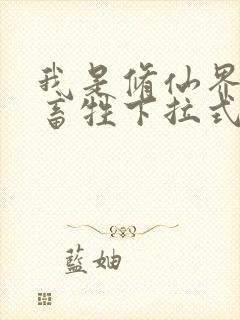 我是修仙界
畜牲下拉式
藍妯